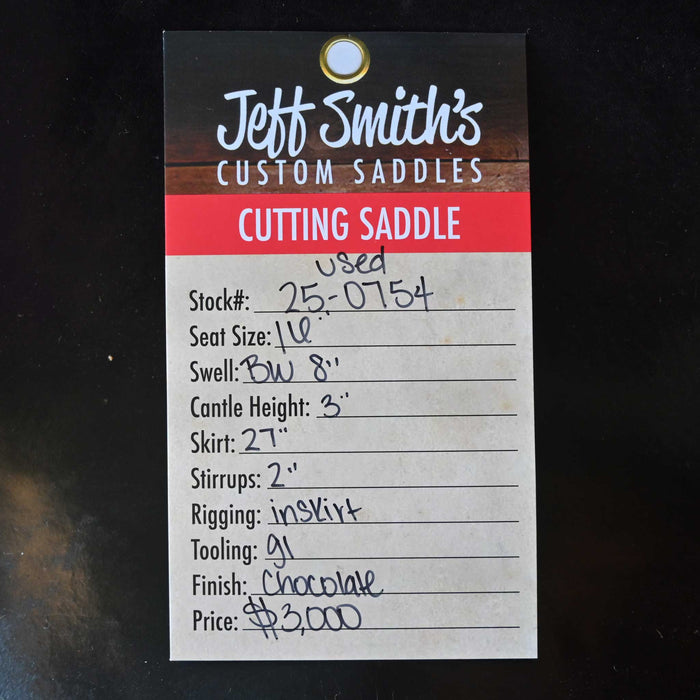 Jeff Smith's
CUSTOM SADDLES
CUTTING SADDLE
used
Stock#: 25-0754
Seat Size: 16"
Swell: BW 8"
Cantle Height: 3"
Skirt: 27"
Stirrups: 2"
Rigging: inskirt
Tooling: 91
Finish: Chocolate
Price: $3,000